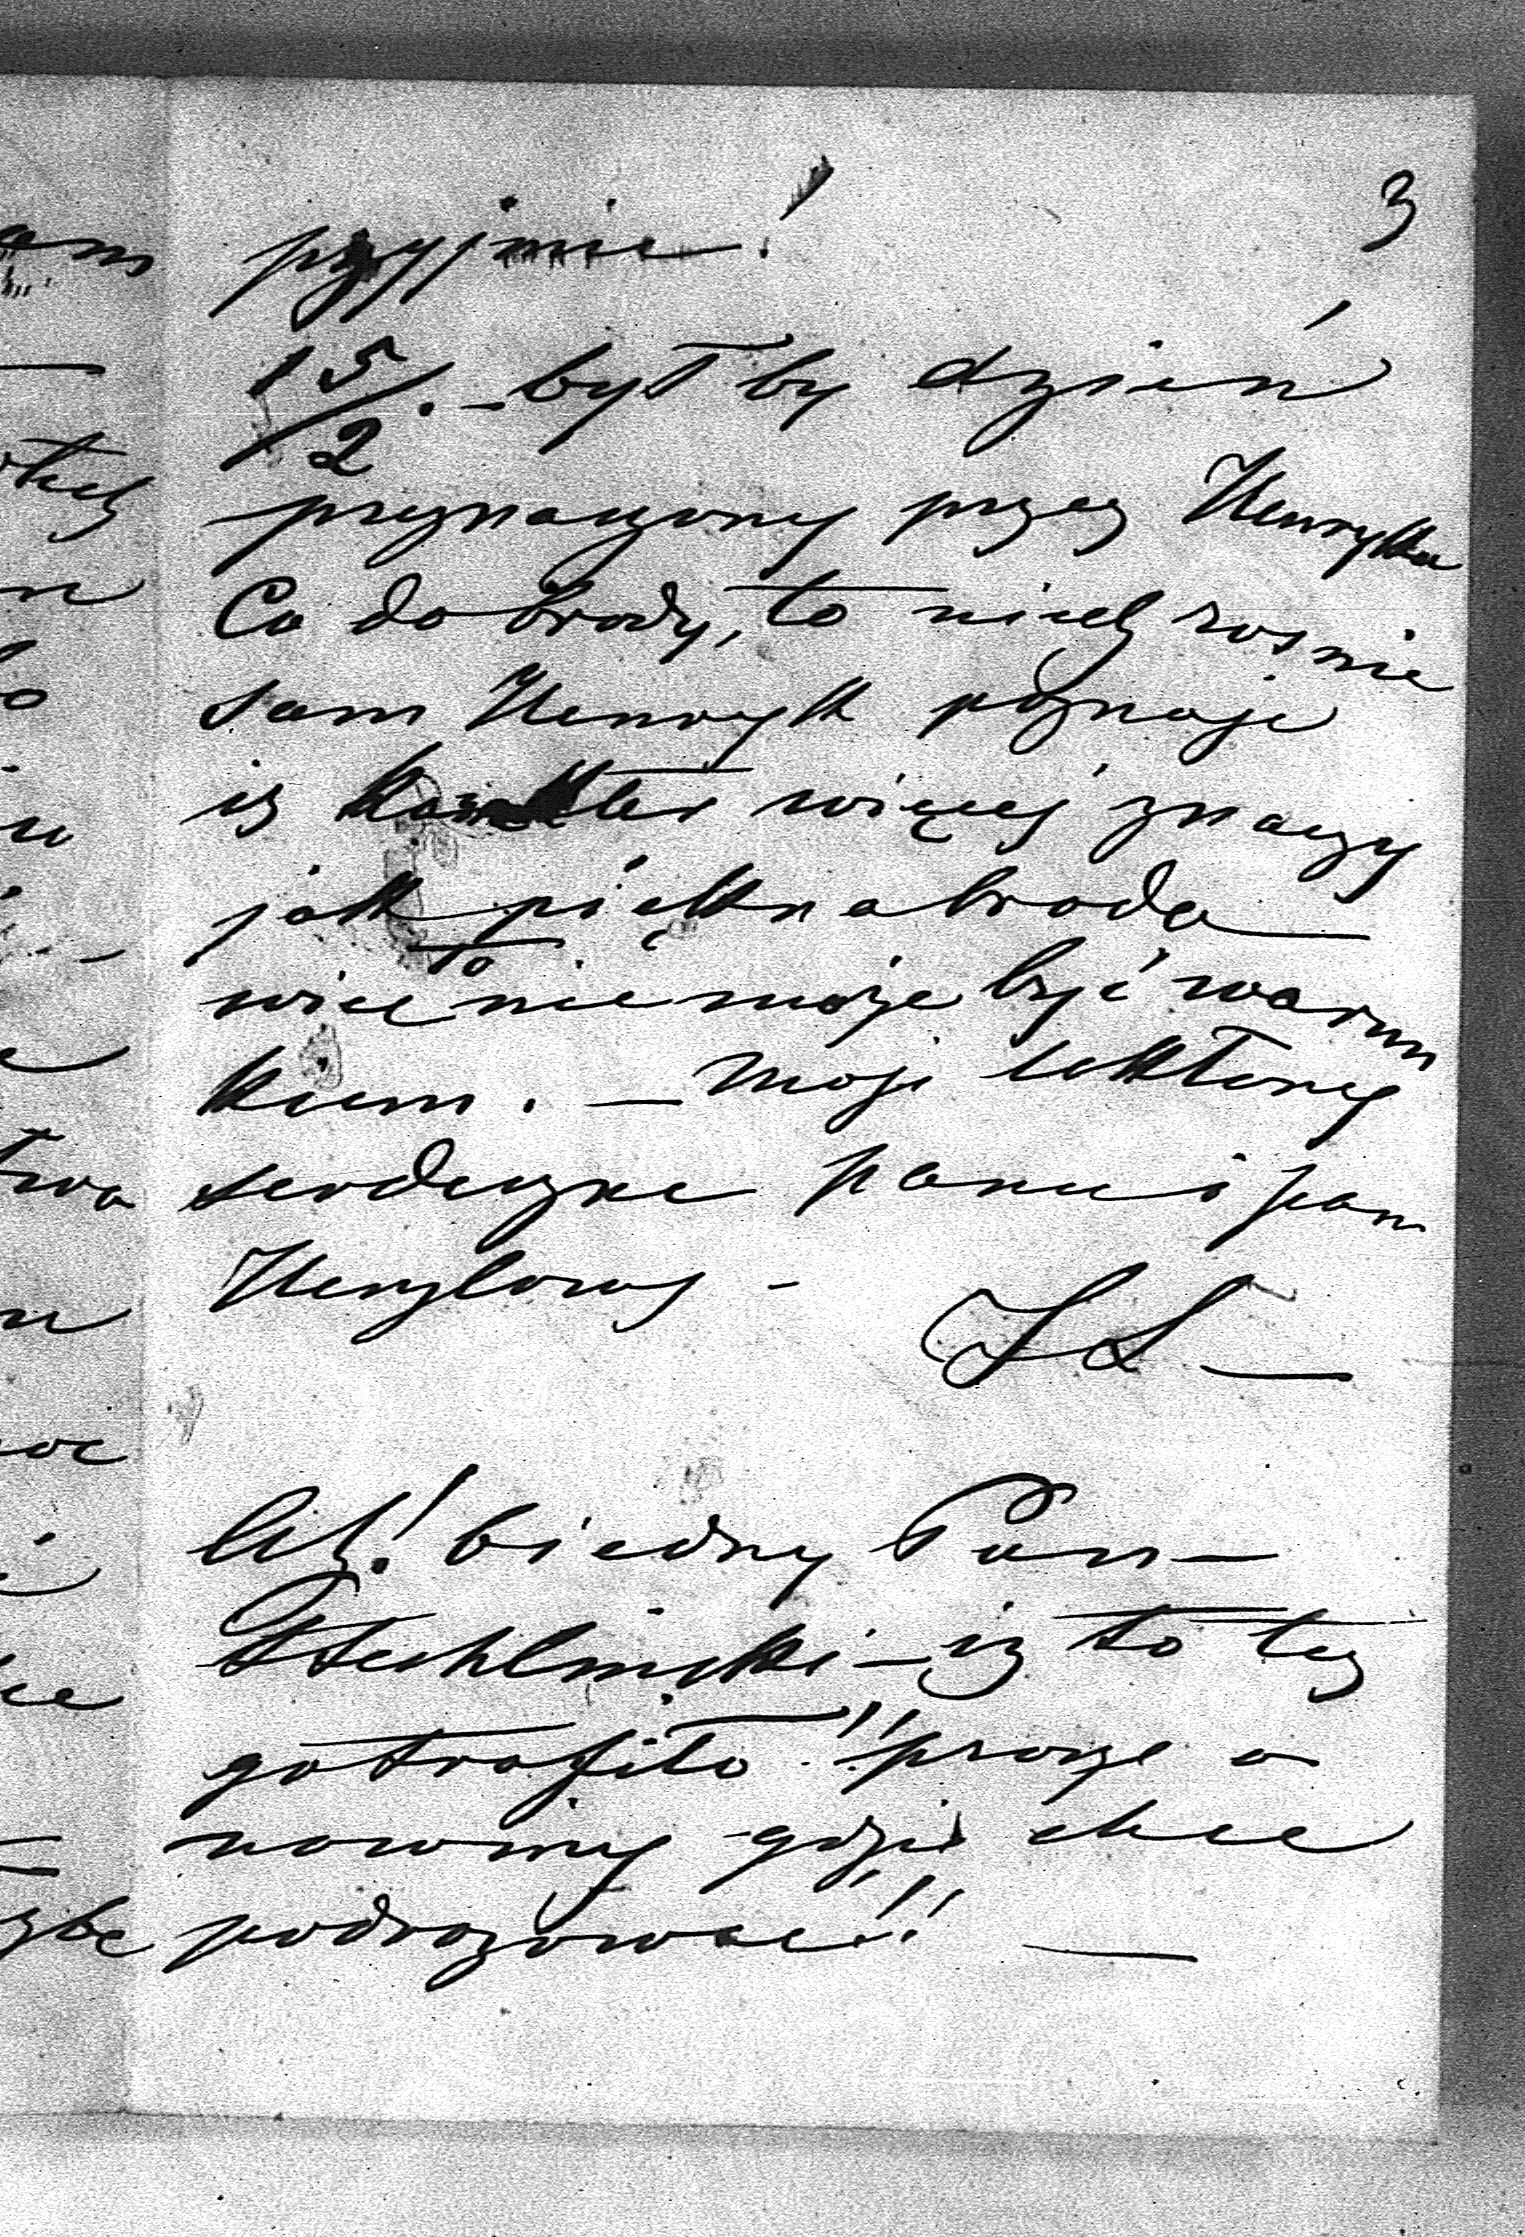 3
przyjmie!
15/2. – byłby dzień
przeznaczony przez Henryka
Co do brody, to niech rosnie
sam Henryk poznaje
iz więcej znaczy
jak piekna broda
więc to nie moze być warun
kiem. – Moje ukłony
serdeczne panu i pani
– 
Ach! biedny Pan –
– iz to tez
go trafiło!! prosze o
nowiny gdzie chce
podrozowac!! –